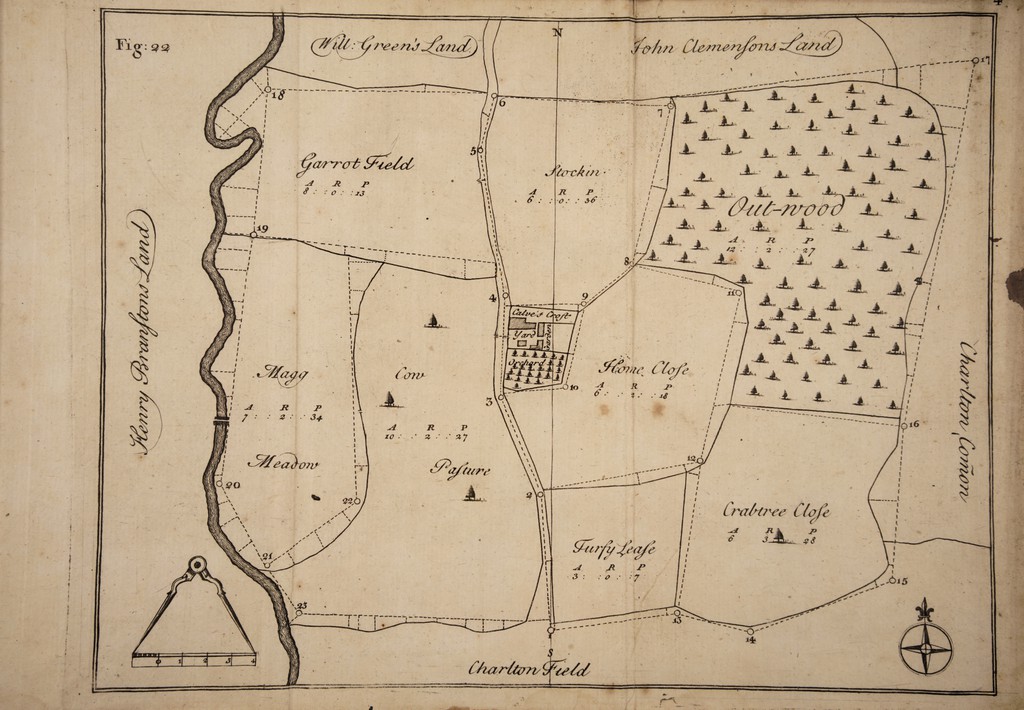 Fig: 22
Will: Green's Land
N
John Clemensons Land
17
18
6
7
5
Garrot Field
A R P
8 : 0 : 13
Stockin
A R P
6 : 0 : 36
Out-wood
A R P
12 : 2 : 27
19
8
11
4
9
Calve's Croft
Yard
Garden
Orchard
10
3
Henry Branstons Land
Magg
A R P
7 : 2 : 34
Meadow
Cow
A R P
10 : 2 : 27
Pasture
Home Close
A R P
6 : 2 : 18
Charlton Com̃on
16
12
20
22
2
Crabtree Close
A R P
6 3 28
Fursy Lease
A R P
3 : 0 : 7
21
15
23
13
14
S
0 1 2 3 4
Charlton Field